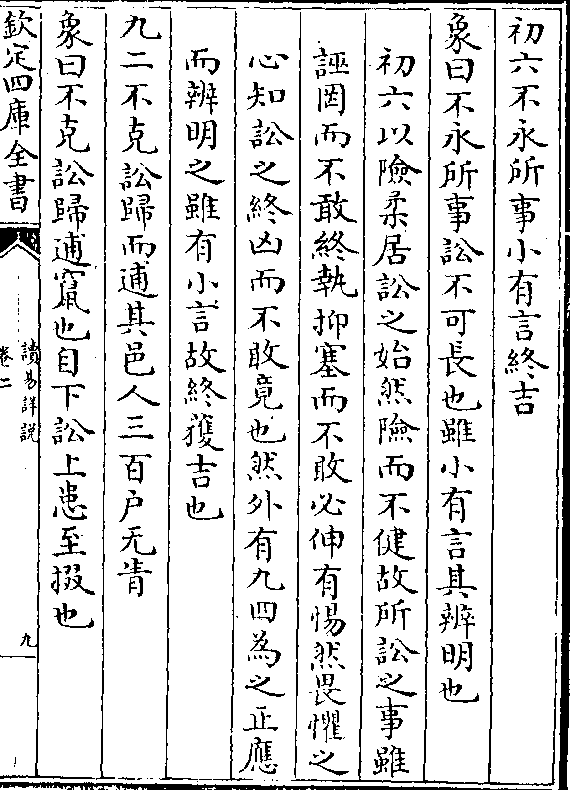 初六不永所事小有言終吉
象曰不永所事訟不可長也雖小有言其辨明也
初六以險柔居訟之始然險而不健故所訟之事雖
誣罔而不敢終執抑塞而不敢必伸有惕然畏懼之
心知訟之終凶而不敢竟也然外有九四為之正應
而辨明之雖有小言故終獲吉也
九二不克訟歸而逋其邑人三百户无眚
象曰不克訟歸逋竄也自下訟上患至掇也
欽定四庫全書
讀易詳說
卷二
九